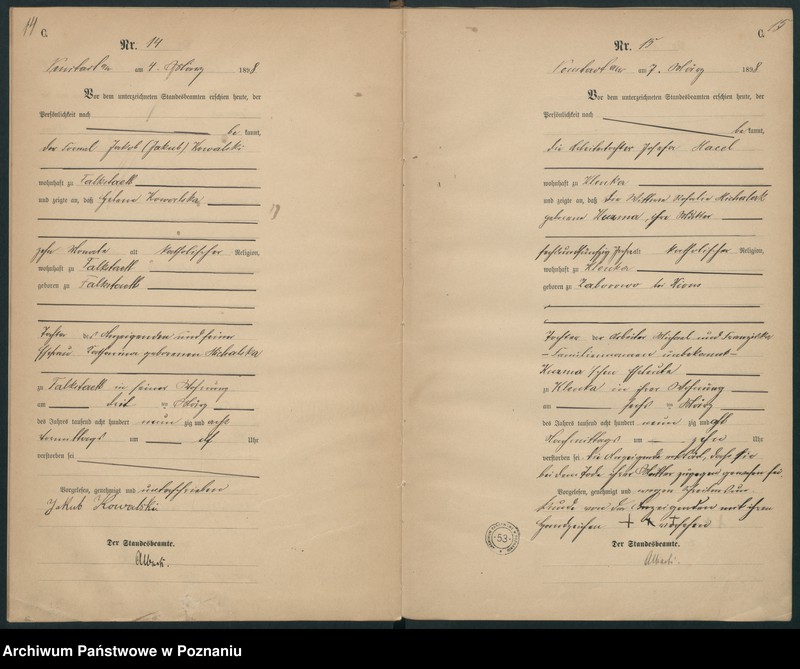 14
C.
Nr. 14
am 4. März 1898
Vor dem unterzeichneten Standesbeamten erschien heute, der
Persönlichkeit nach
be kannt,
der Jakob (Jakub) Kowalski
wohnhaft zu Falkstaett
und zeigte an, daß Helena Kowalska
zehn Monate alt katholischer Religion,
wohnhaft zu Falkstaett
geboren zu Falkstaett
Tochter des Anzeigenden und seiner
Ehefrau Katharina geborenen Michalska
zu Falkstaett in seiner Wohnung
am drei ten März
des Jahres tausend acht hundert neun zig und acht
Vormittags um elf Uhr
verstorben sei
Vorgelesen, genehmigt und unterschrieben
Jakub Kowalski
Der Standesbeamte.
Alberti.
15
C.
Nr. 15
am 7. März 1898
Vor dem unterzeichneten Standesbeamten erschien heute, der
Persönlichkeit nach
be kannt,
die Josefa
wohnhaft zu Klenka
und zeigte an, daß die Wittwe Rosalie Michalak
geborene Kuzma, ihre Mutter
sechsundfünfzig Jahre alt katholischer Religion,
wohnhaft zu Klenka
geboren zu Zaborowo
Tochter der Arbeiter Michael und Franziska
– Familiennamen unbekannt –
Kuzma'schen Eheleute
zu Klenka in ihrer Wohnung
am sechs ten März
des Jahres tausend acht hundert neun zig und acht
Nachmittags um zehn Uhr
verstorben sei. Die Anzeigende erklärt, daß sie
bei dem Tode ihrer Mutter zugegen gewesen sei.
Vorgelesen, genehmigt und wegen Schreibens Un-
kunde von der Anzeigenden mit ihrem
Handzeichen + + + versehen
53
Der Standesbeamte.
Alberti.
Archiwum Państwowe w Poznaniu